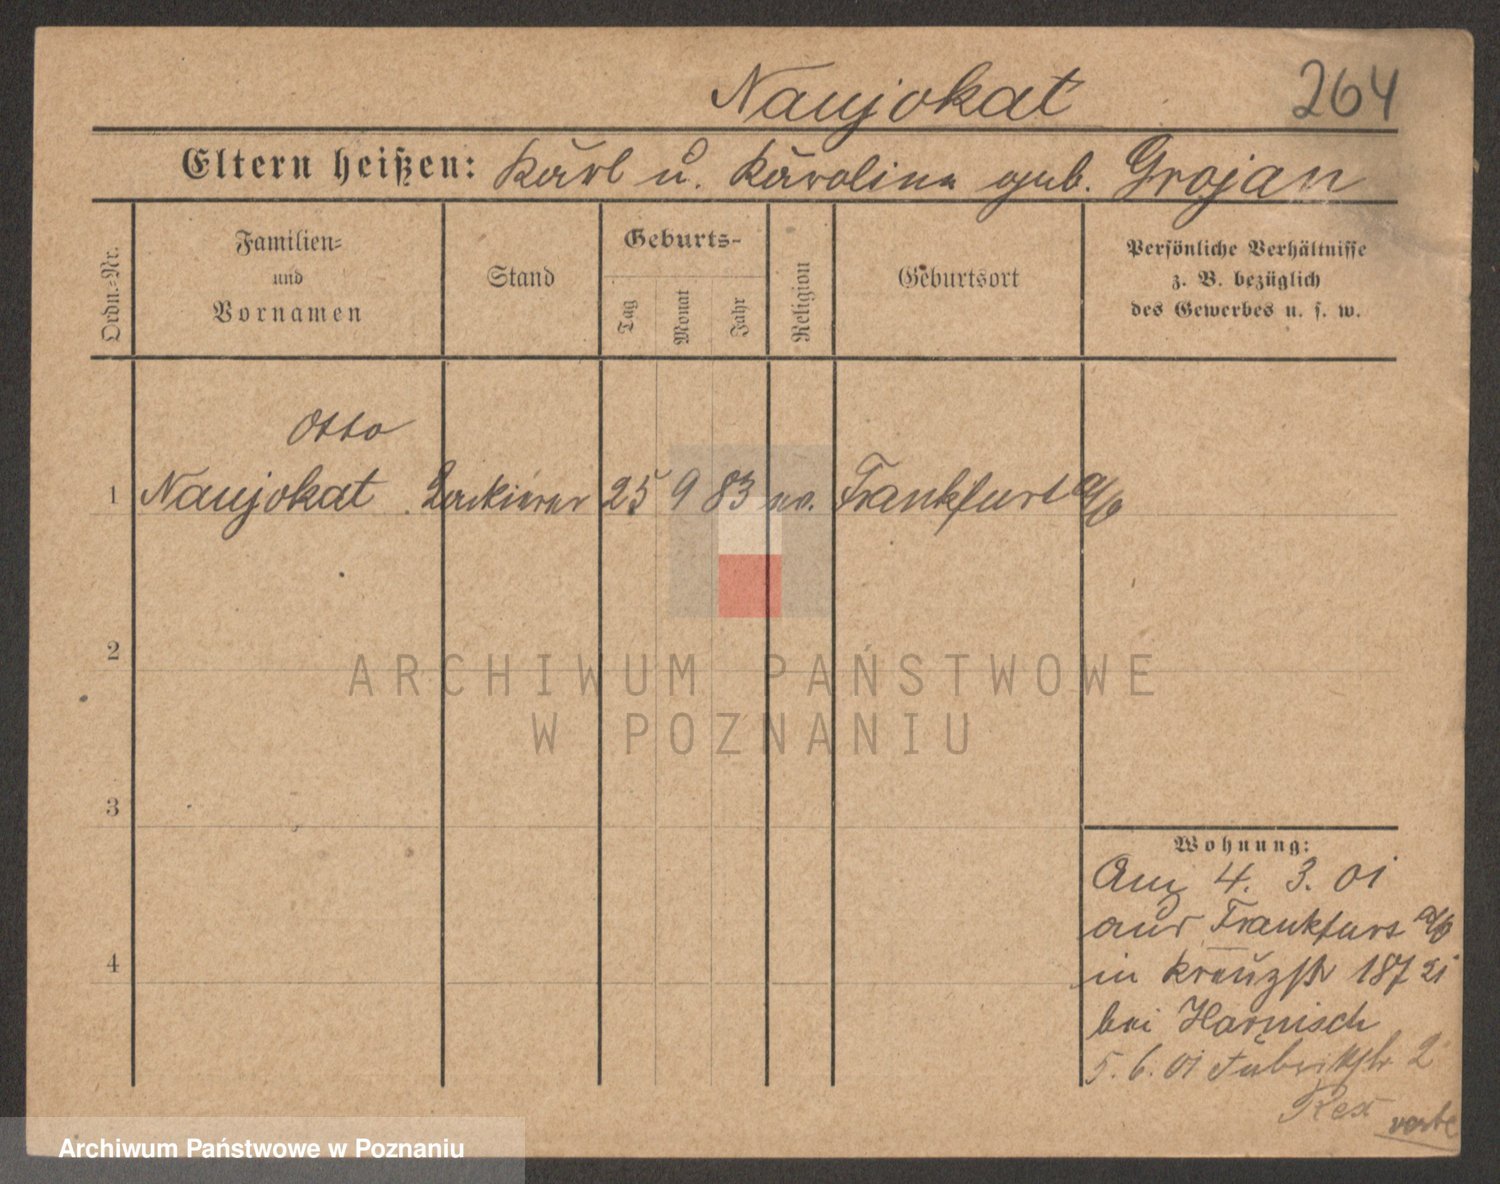 Naujokat 264
Eltern heißen: Karl u. Karolina geb. Grojan
Ordn.-Nr.
Familien-
und
Vornamen
Stand
Geburts-
Tag
Monat
Jahr
Religion
Geburtsort
Persönliche Verhältnisse
z. B. bezüglich
des Gewerbes u. s. w.
Otto
1 Naujokat Lackierer 25 9 83 ev. Frankfurt a/O
2
ARCHIWUM PAŃSTWOWE
W POZNANIU
3
4
Wohnung:
Anz 4. 3. 01
aus Frankfurt a/O
in Kreuzstr 187 21
bei Harnisch
5. 6. 01 Fabrikstr 2
Rex
Archiwum Państwowe w Poznaniu